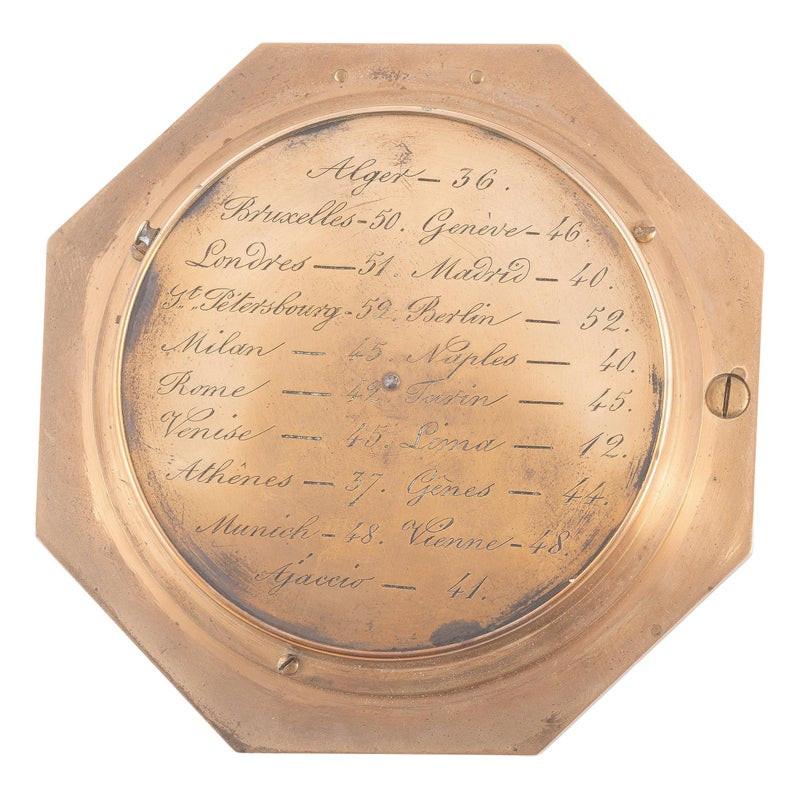 Alger — 36.
Bruxelles - 50. Genève - 46.
Londres — 51. Madrid — 40.
St. Pétersbourg - 59. Berlin — 52.
Milan — 45. Naples — 40.
Rome — 42. Turin — 45.
Venise — 45. Lima — 12.
Athênes — 37. Gênes — 44.
Munich - 48. Vienne - 48.
Ajaccio — 41.